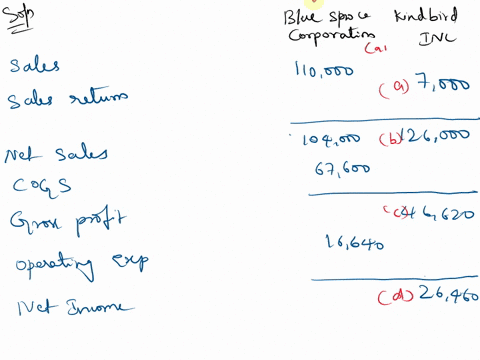 Soln
Blue Space Corporation
Kindbird INC
(a)
Sales 110,000
Sales return (a) 7,000
Net Sales 104,000 (b) 126,000
COGS 67,600
Gross profit (c) 46,620
Operating Exp 16,640
Net Income (d) 26,460